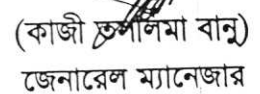 (কাজী তাসলিমা বানু)
জেনারেল ম্যানেজার